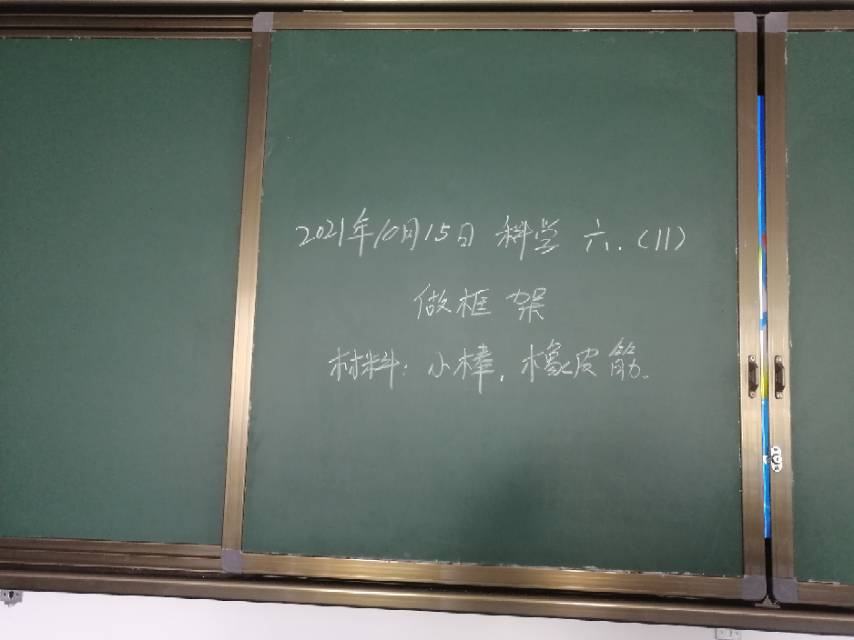 2021年10月15日 科学 六.(11)
做框架
材料:小棒,橡皮筋。